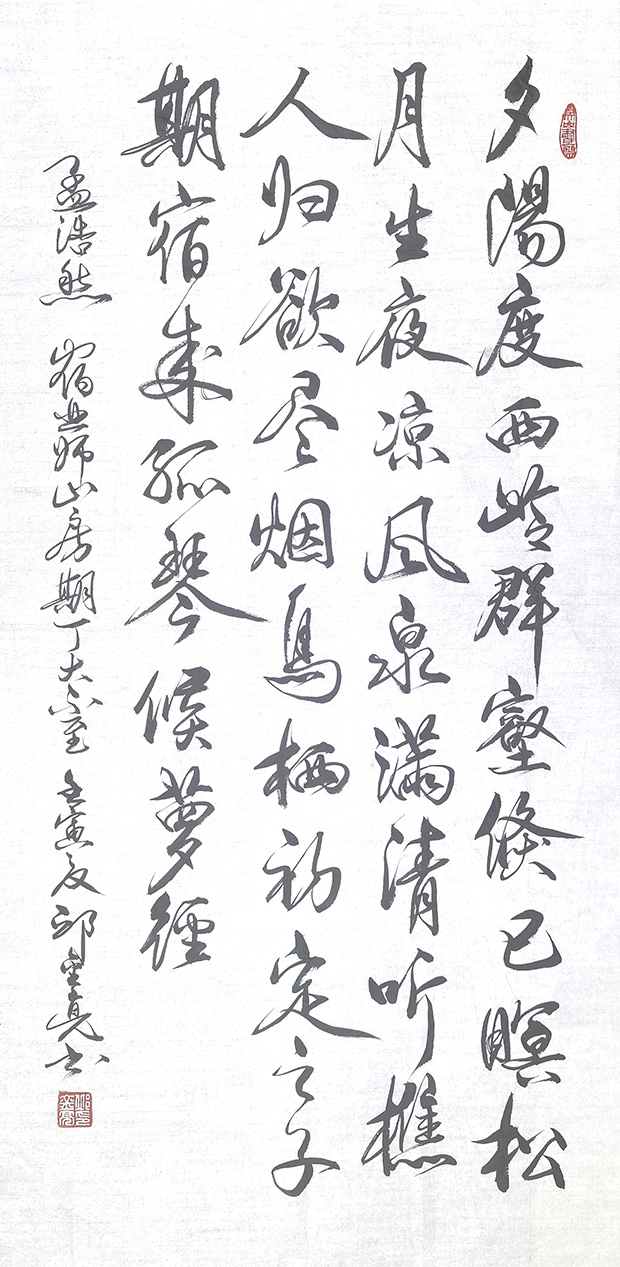 夕陽度西岭群壑倏已暝松
月生夜凉风泉满清听樵
人归欲尽烟鸟栖初定之子
期宿来孤琴候萝徑
孟浩然 宿业师山房期丁大不至 壬寅夏 邱金亮书